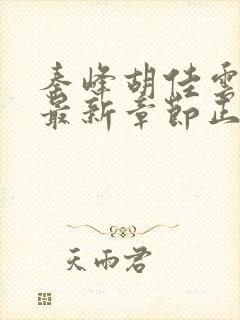 秦峰胡佳雲
最新章節正
天雨君